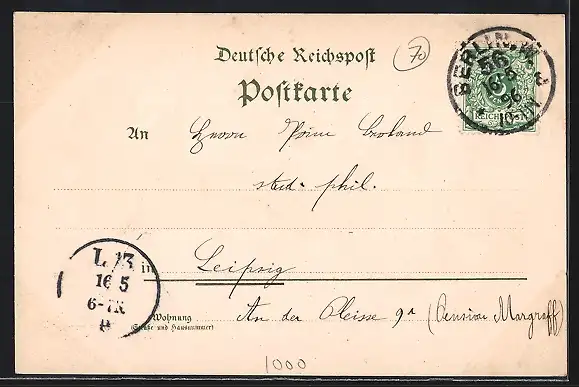 Deutsche Reichspost
70
Postkarte
BERLIN, W.
56
16/5
96
10-11V
REICHSPOST
An Herrn
stud. phil.
L. 13
16 5
6-7N
in Leipzig
Wohnung An der Pleisse 9a (Pension Margraff)
(Straße und Hausnummer)
1000